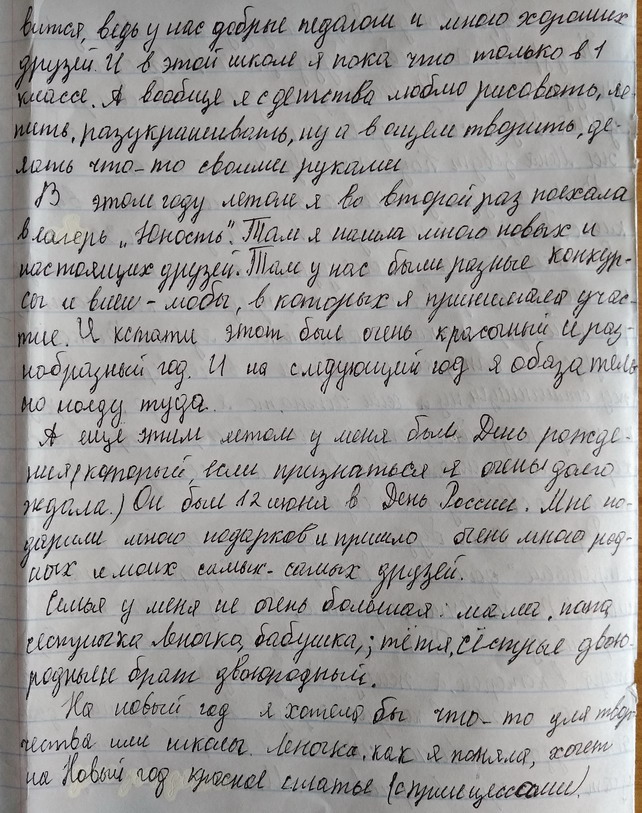 вится, ведь у нас добрые педагоги и много хороших
друзей. И в этой школе я пока что только в 1
классе. А вообще я с детства люблю рисовать, ле-
пить, разукрашивать, ну а в общем творить, де-
лать что-то своими руками
В этом году летом я во второй раз поехала
в лагерь „Юность". Там я нашла много новых и
настоящих друзей. Там у нас были разные конкур-
сы и флеш-мобы, в которых я принимала учас-
тие. И кстати этот был очень красочный и раз-
нобразный год. И на следующий год я обазатель
но поеду туда.
А еще этим летом у меня был День рожде-
ния (который, если признаться я очень долго
ждала.) Он был 12 июня в День России. Мне по-
дарили много подарков и пришло очень много род-
ных и моих самых-самых друзей.
Семья у меня не очень большая: мама, папа
сестрычка Леночка, бабушка, тётя, сёстры двою-
родные и брат двоюродный.
На новый год я хотела бы что-то для твор-
чества или школы. Леночка, как я поняла, хочет
на Новый год красное платье (с принцессами).